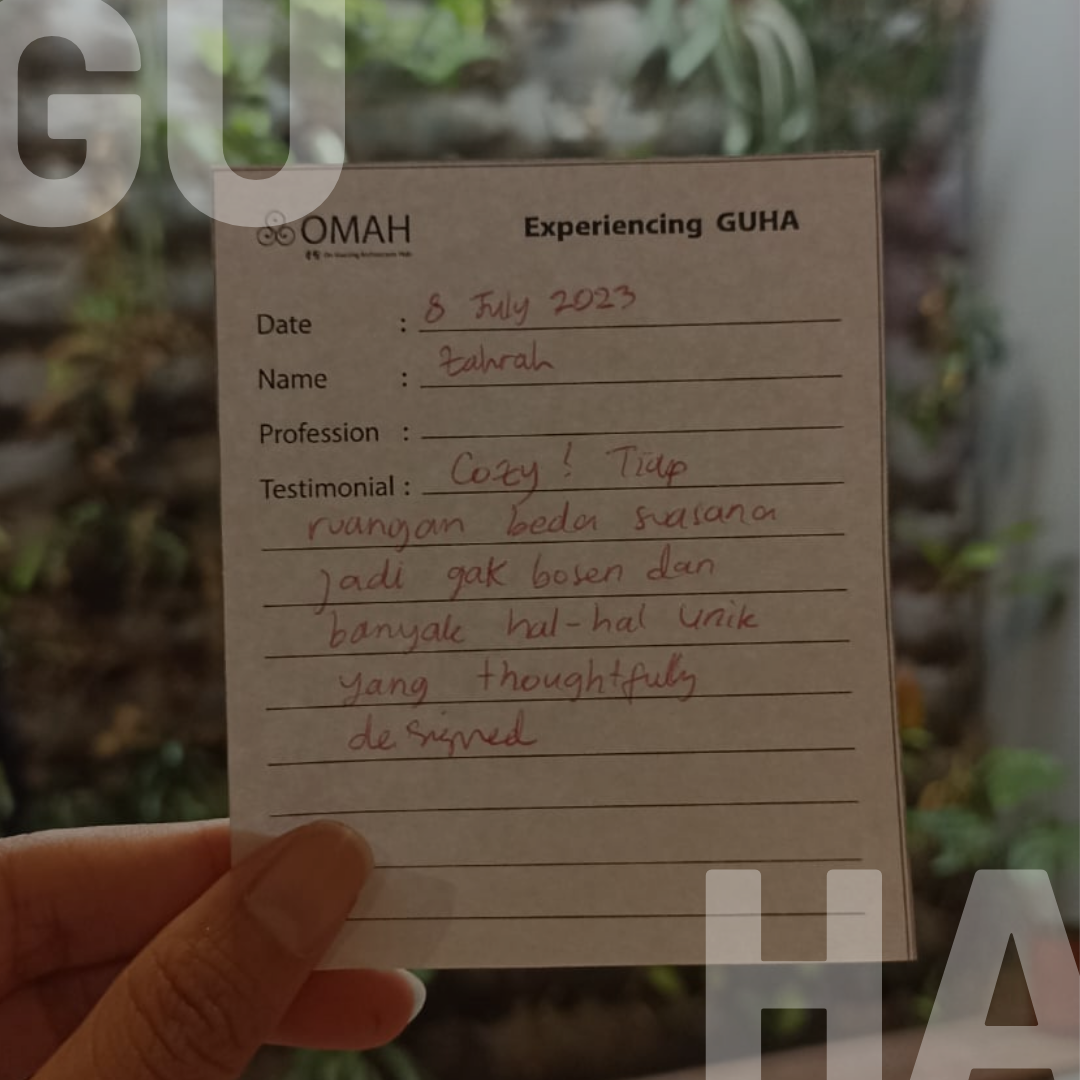 GU
OMAH Experiencing GUHA
Date : 8 July 2023
Name : Zahrah
Profession :
Testimonial : Cozy! Tiap
ruangan beda suasana
jadi gak bosen dan
banyak hal-hal unik
yang thoughtfully
designed
HA